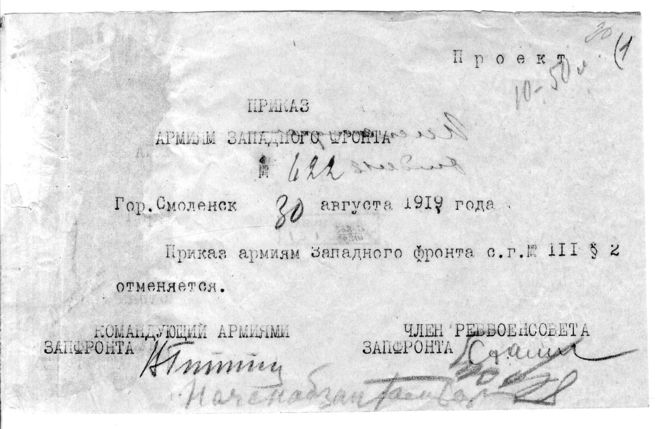 Проект
10-50
ПРИКАЗ
АРМИЯМ ЗАПАДНОГО ФРОНТА
№ 622
Гор.Смоленск 30 августа 1919 года
Приказ армиям Западного фронта с.г.№ III § 2
отменяется.
КОМАНДУЮЩИЙ АРМИЯМИ ЧЛЕН РЕВВОЕНСОВЕТА
ЗАПФРОНТА ЗАПФРОНТА